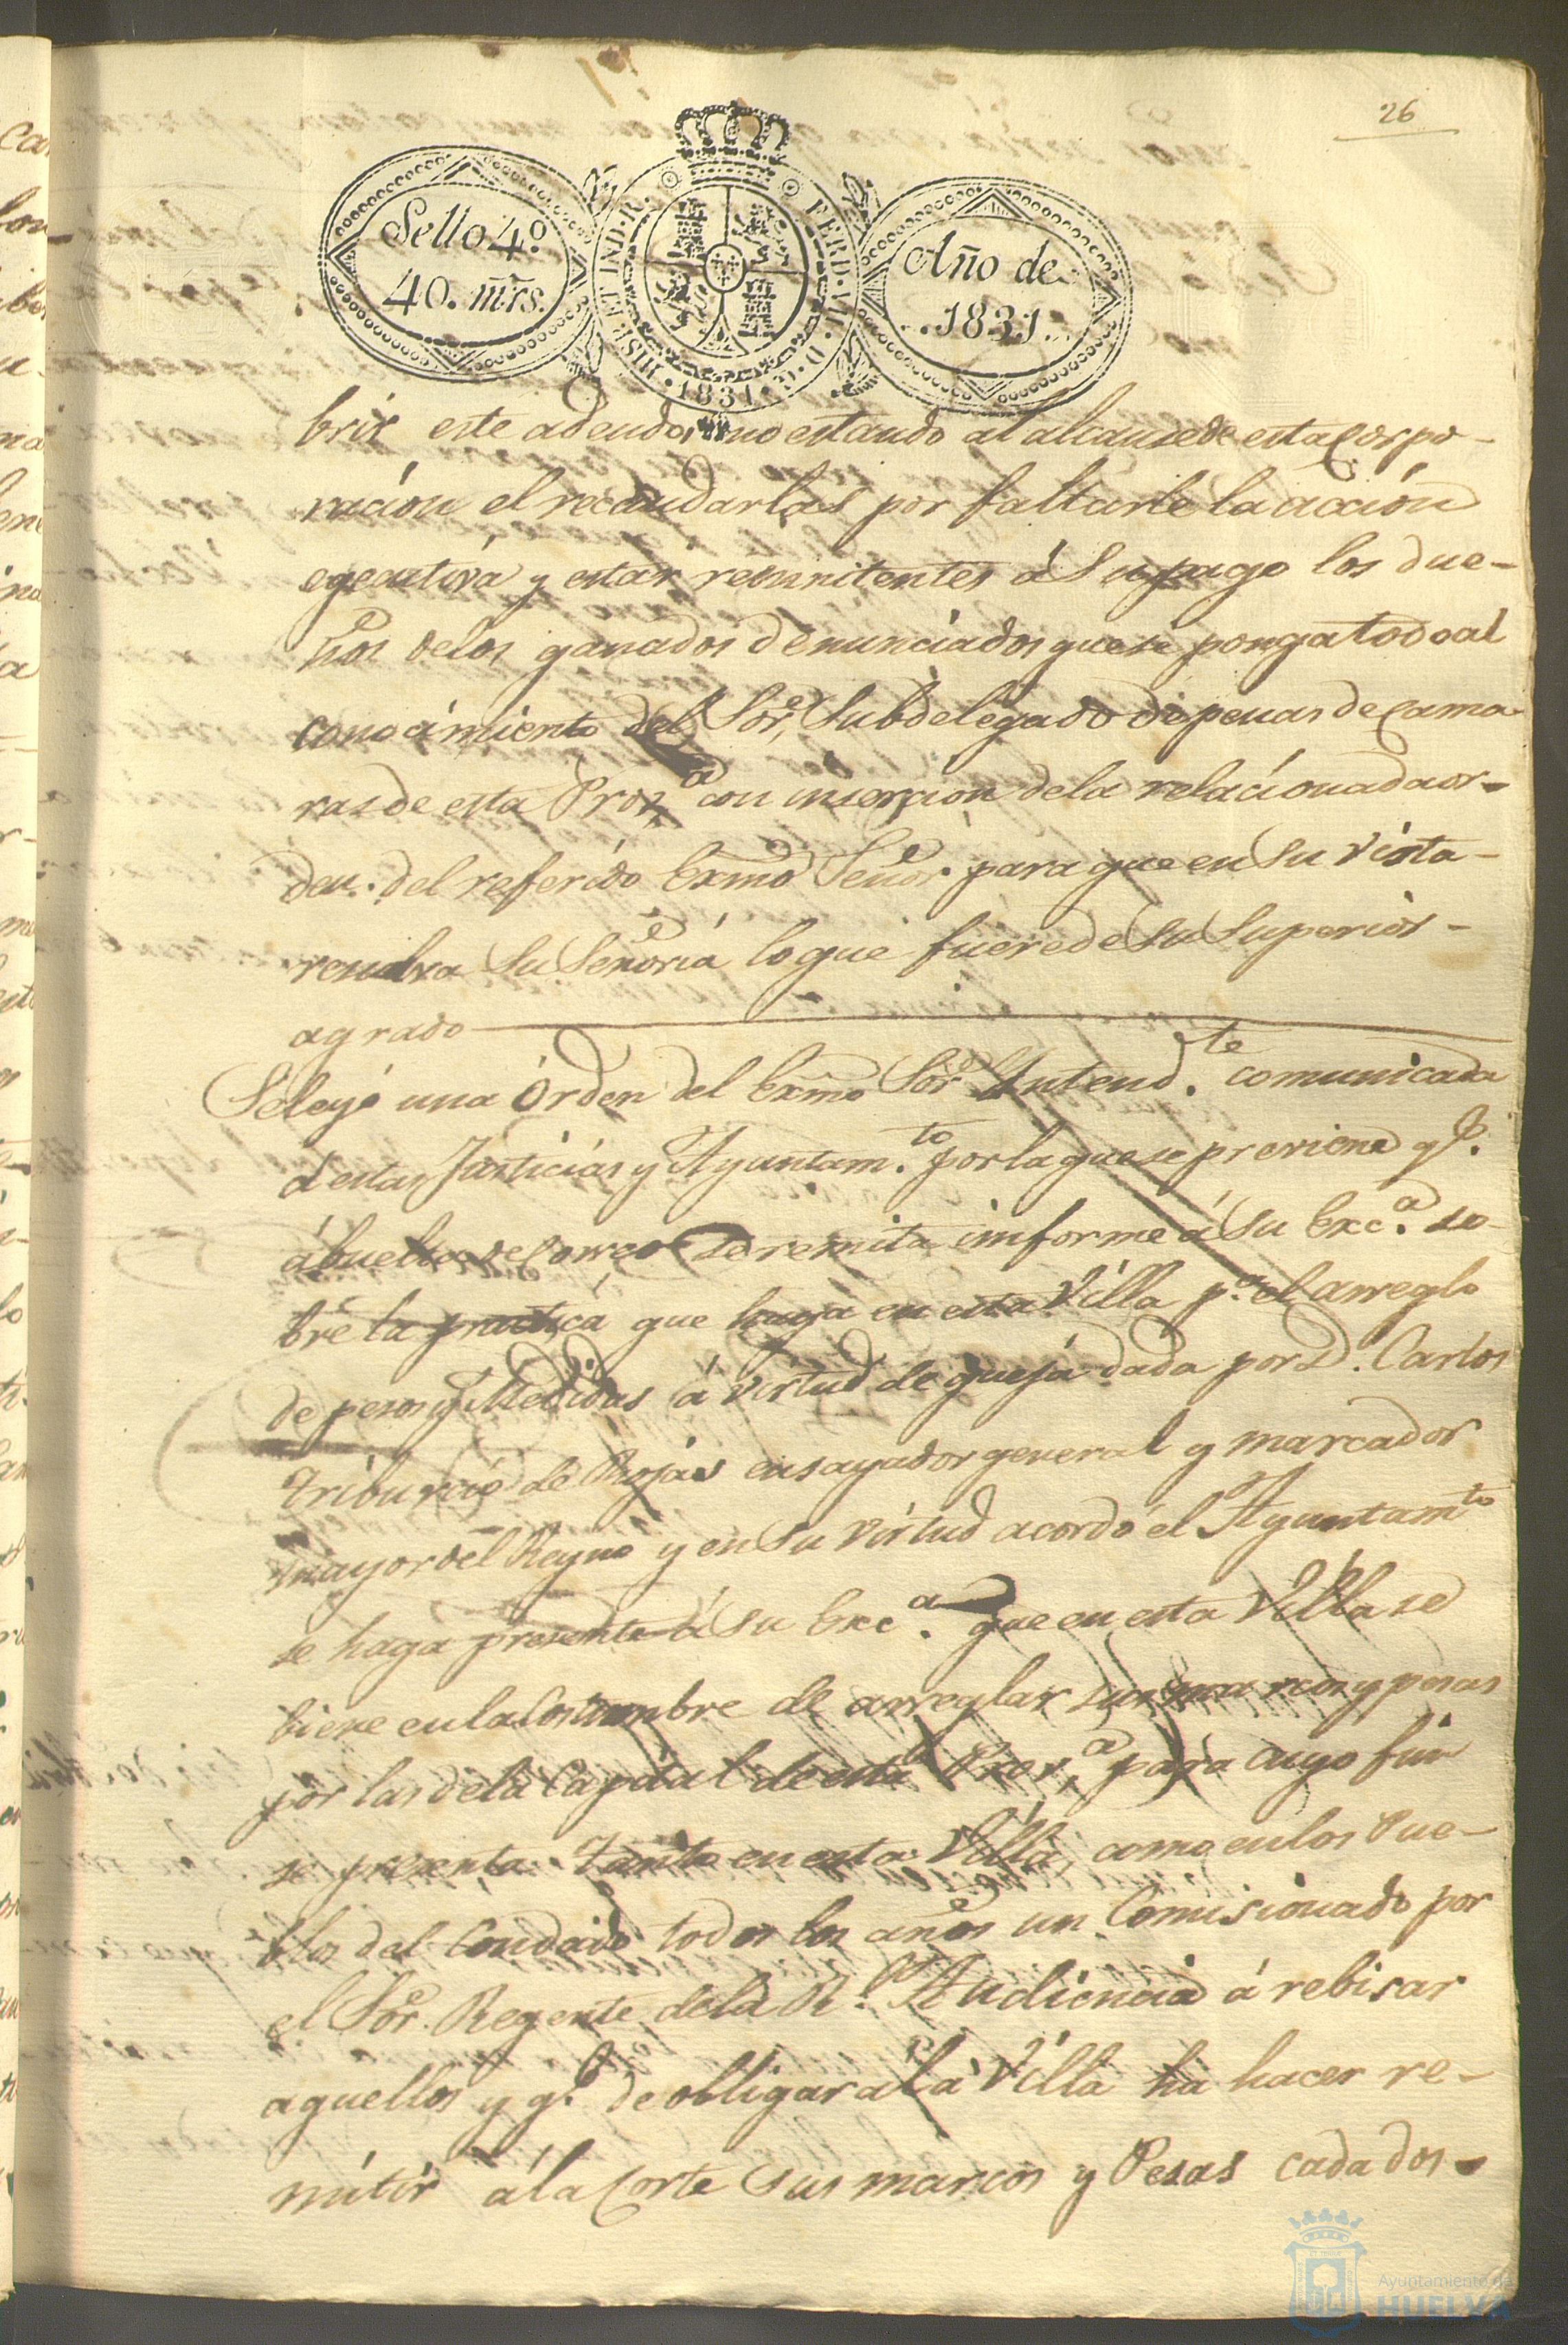 26
Sello 4º
40. mrs.
HISP. ET IND. R. FERD. VII. D. G. 1831
Año de
1831
brir este adeudo, no estando al alcanse de esta Corpo-
racion el recaudarlas por faltarle la accion
egecutiva y estar renuitentes á Su pago los due-
ños delos ganados denunciados que se ponga todo al
conocimiento del Sor. Subdelegado de penas de Cama-
ras de esta Prov.ª con insercion dela relacionada or-
den. del referido Exmo Señor para que en Su vista-
resuelva Su Señoria loque fuere de Su Superior-
agrado
Se leyó una Órden del Exmo Sor. Intend.te comunicada
á estas Justicias y Ayuntam.to por la que se previene q.e
á buelta de Correo se remita imforme á Su Exc.ª so-
bre la practica que haya en esta Villa p.ª el arreglo
de pesos y Medidas á virtud de queja dada por D. Carlos
Triburcio de Rojas ensayador general y marcador
mayor del Reyno y en Su virtud acordó el Ayuntam.to
se haga presente á Su Exc.ª que en esta Villa se
tiene en la Costumbre de arreglar sus marcos y pesas
por las dela Capital de esta Prov.ª para cuyo fin
se presenta tanto en esta Villa, como en los Pue-
blos del Condado todos los años un Comisionado por
el Sor. Regente dela R.l Audiencia á rebisar
aquellos y q.e de obligar ala Villa ha hacer re-
mitir ála Corte Sus marcos y Pesas cada dos-
Ayuntamiento de
HUELVA